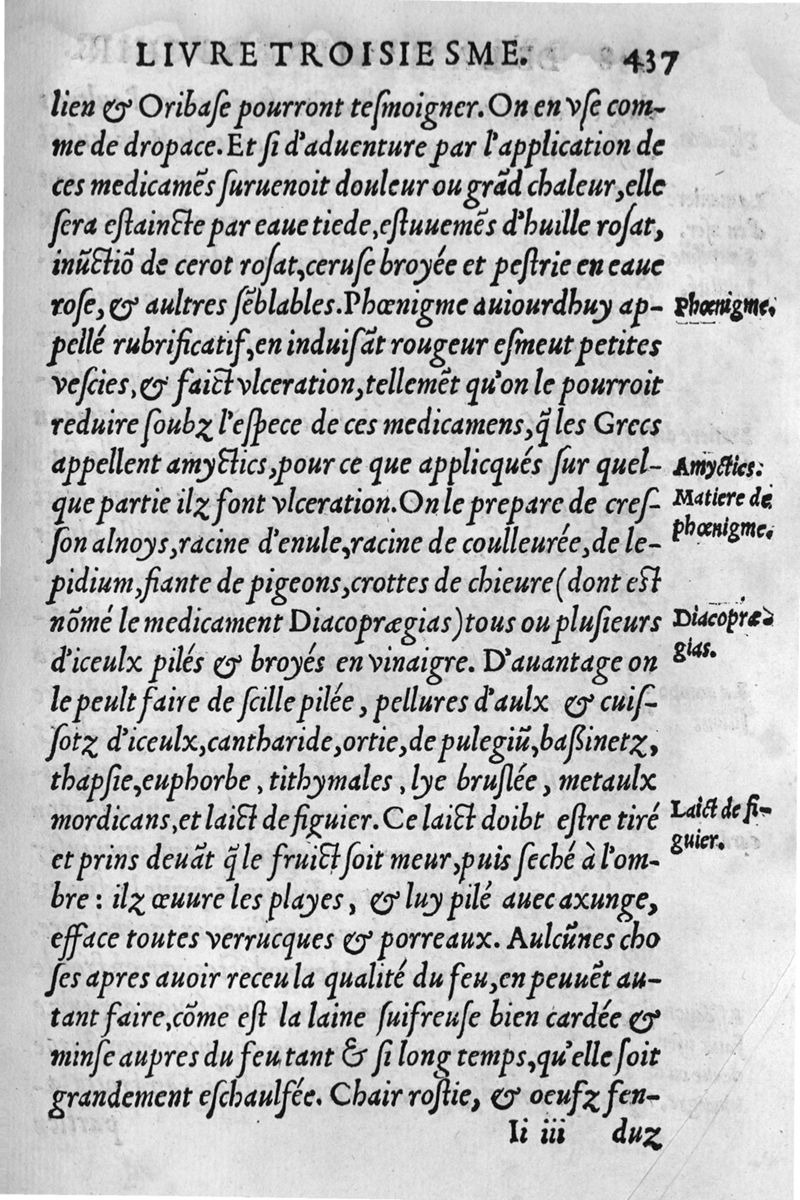 LIVRE TROISIESME. 437
lien & Oribaſe pourront teſmoigner. On en vſe com-
me de dropace. Et ſi d'aduenture par l'application de
ces medicamẽs ſuruenoit douleur ou grãd chaleur, elle
ſera eſtaincte par eaue tiede, eſtuuemẽs d'huille roſat,
inũctiõ de cerot roſat, ceruſe broyée et peſtrie en eaue
roſe, & aultres ſẽblables. Phœnigme auiourdhuy ap-
Phœnigme.
pellé rubrificatif, en induiſãt rougeur eſmeut petites
veſcies, & faict vlceration, tellemẽt qu'on le pourroit
reduire ſoubz l'eſpece de ces medicamens, q̃ les Grecs
appellent amyctics, pour ce que applicqués ſur quel-
Amyctics:
que partie ilz font vlceration. On le prepare de creſ-
Matiere de
ſon alnoys, racine d'enule, racine de coulleurée, de le-
phœnigme.
pidium, fiante de pigeons, crottes de chieure (dont eſt
nõmé le medicament Diacoprægias) tous ou pluſieurs
Diacopræ-
d'iceulx pilés & broyés en vinaigre. D'auantage on
gias.
le peult faire de ſcille pilée, pellures d'aulx & cuiſ-
ſotz d'iceulx, cantharide, ortie, de pulegiũ, baßinetz,
thapſie, euphorbe, tithymales, lye bruſlée, metaulx
mordicans, et laict de figuier. Ce laict doibt eſtre tiré
Laict de fi-
et prins deuãt q̃ le fruict ſoit meur, puis ſeché à l'om-
guier.
bre : ilz œuure les playes, & luy pilé auec axunge,
efface toutes verrucques & porreaux. Aulcũnes cho
ſes apres auoir receu la qualité du feu, en peuuẽt au-
tant faire, cõme eſt la laine ſuifreuſe bien cardée &
minſe aupres du feu tant & ſi long temps, qu'elle ſoit
grandement eſchaulfée. Chair roſtie, & oeufz fen-
Ii iii duz